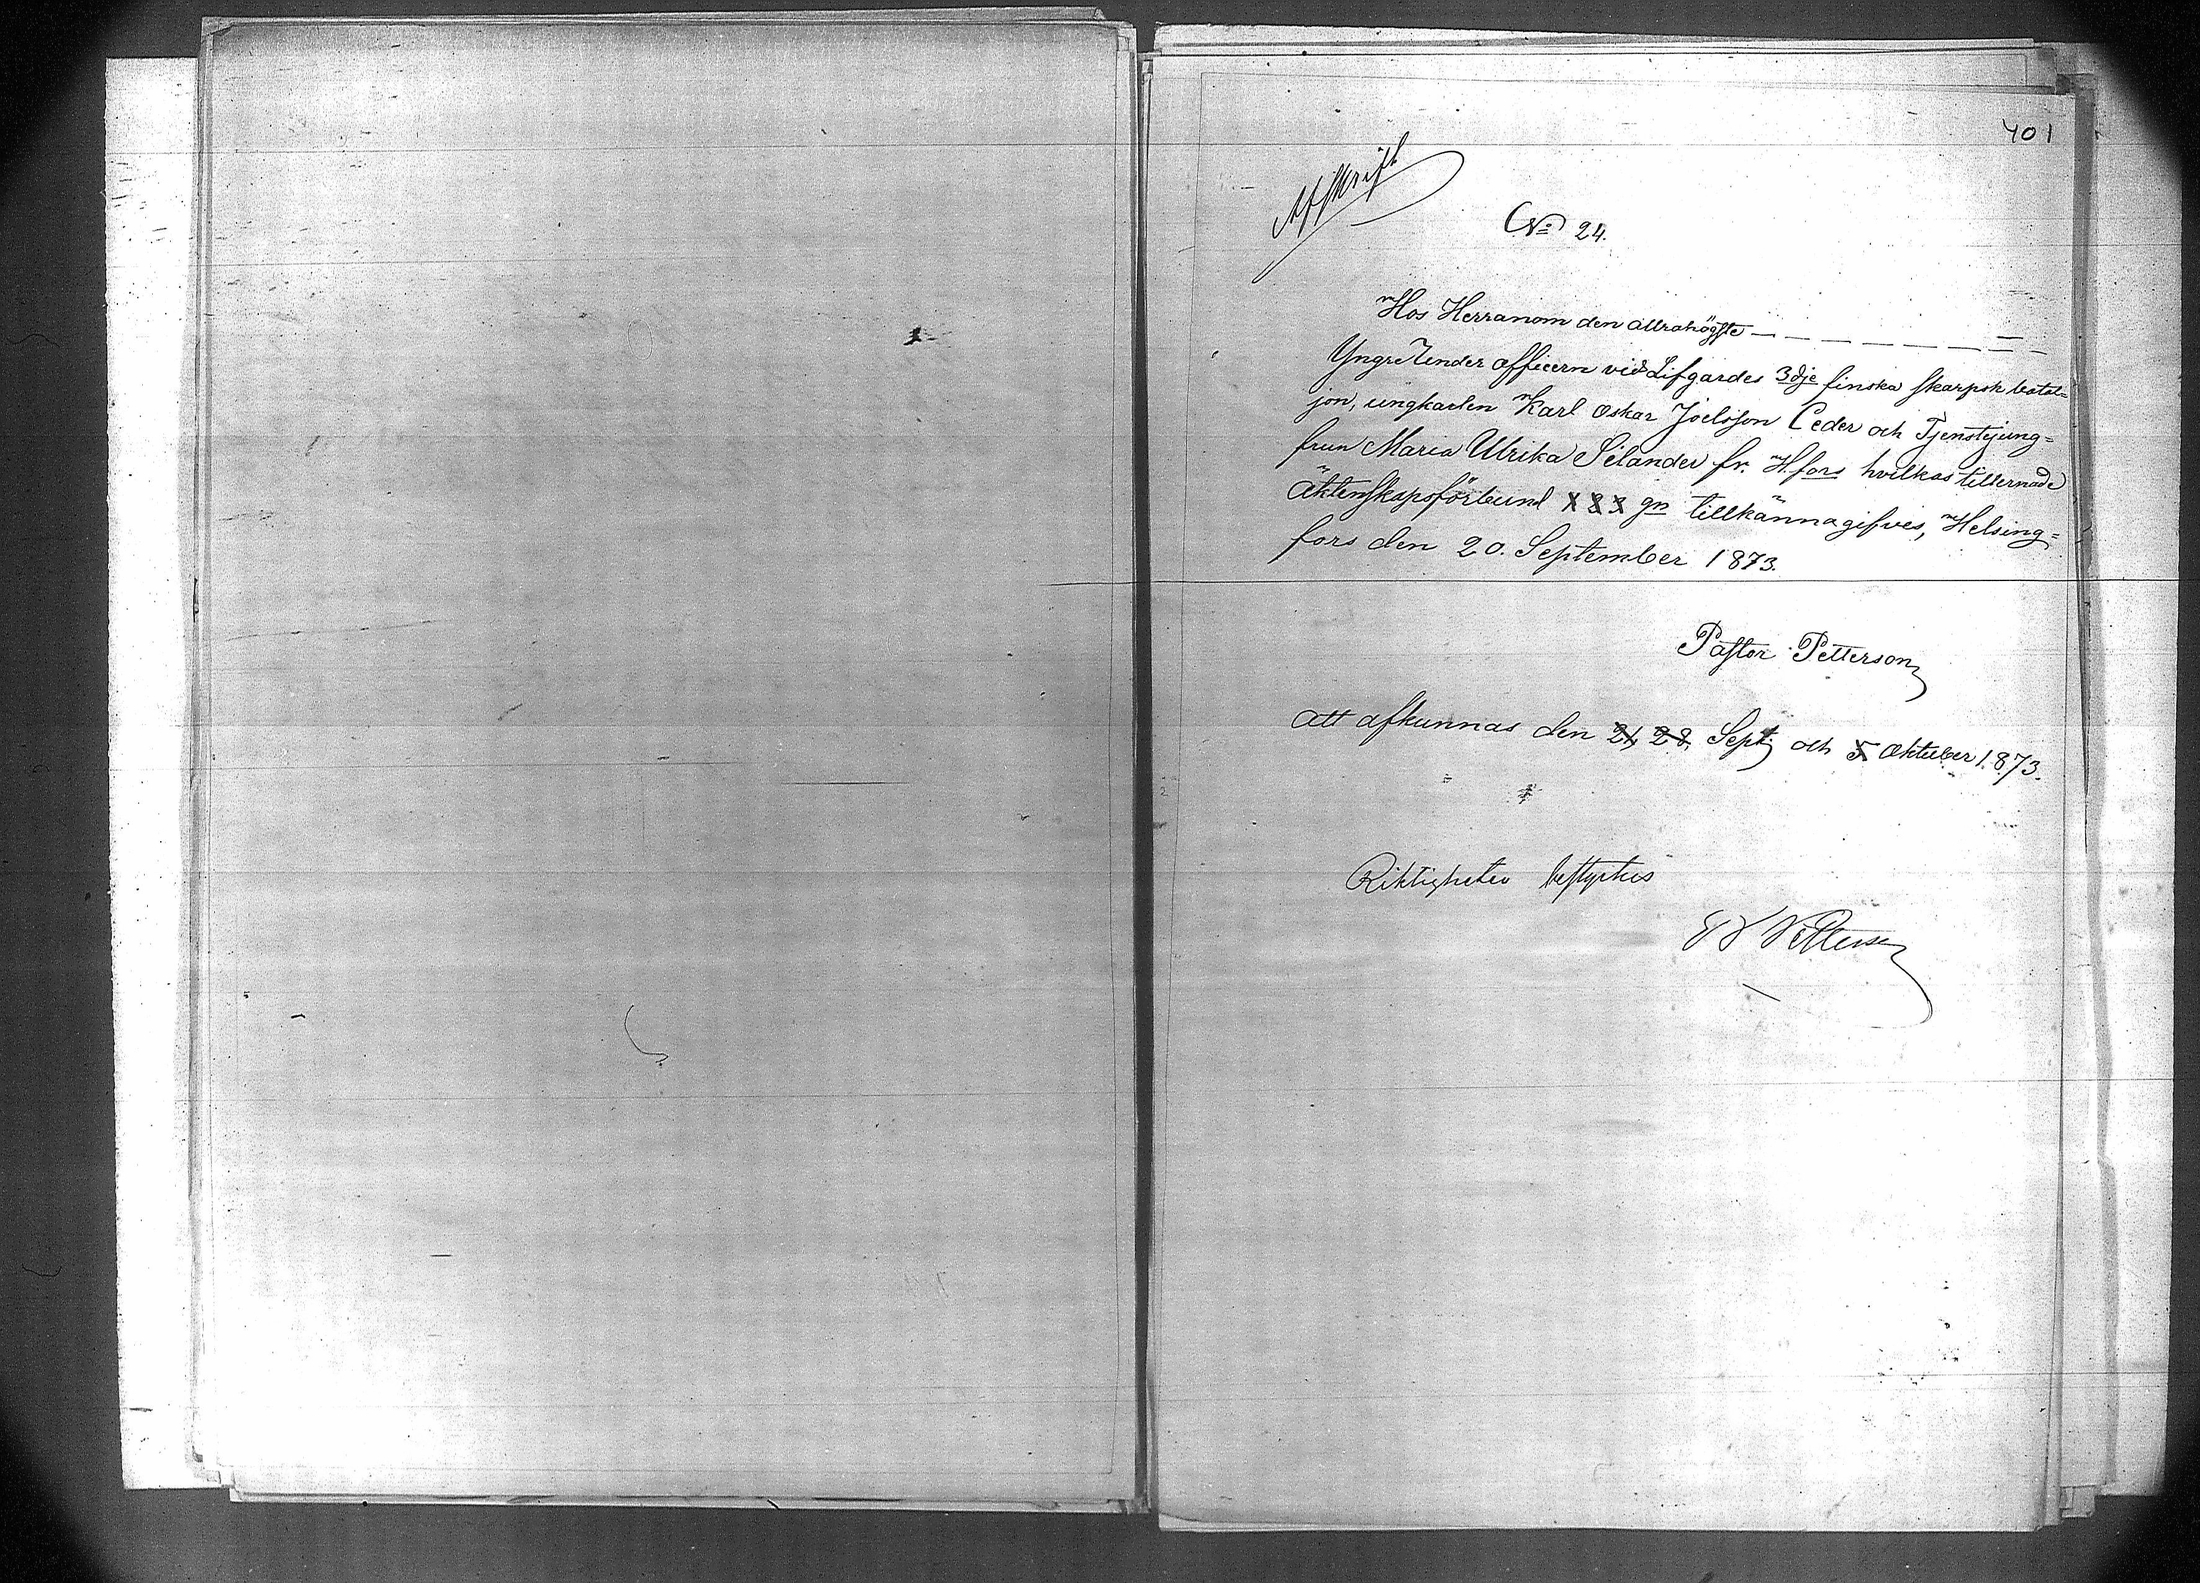 401
Afskrift
No 24.
Hos Herranom den allrahögste — — — — — — —
Yngre Under officern vid Lifgardes 3dje finska skarpsk batal=
jon, ungkarlen Karl Oskar Joelsson Ceder och Tjenstejung=
frun Maria Ulrika Selander fr. H.fors hvilkas tillernade
äktenskapsförbund X X X gn tillkännagifves, Helsing=
fors den 20. September 1873.
Pastor Petterson
Att afkunnas den 21, 28, Sept; och 5 Oktober 1873.
Riktigheten bestyrkes
Petterson